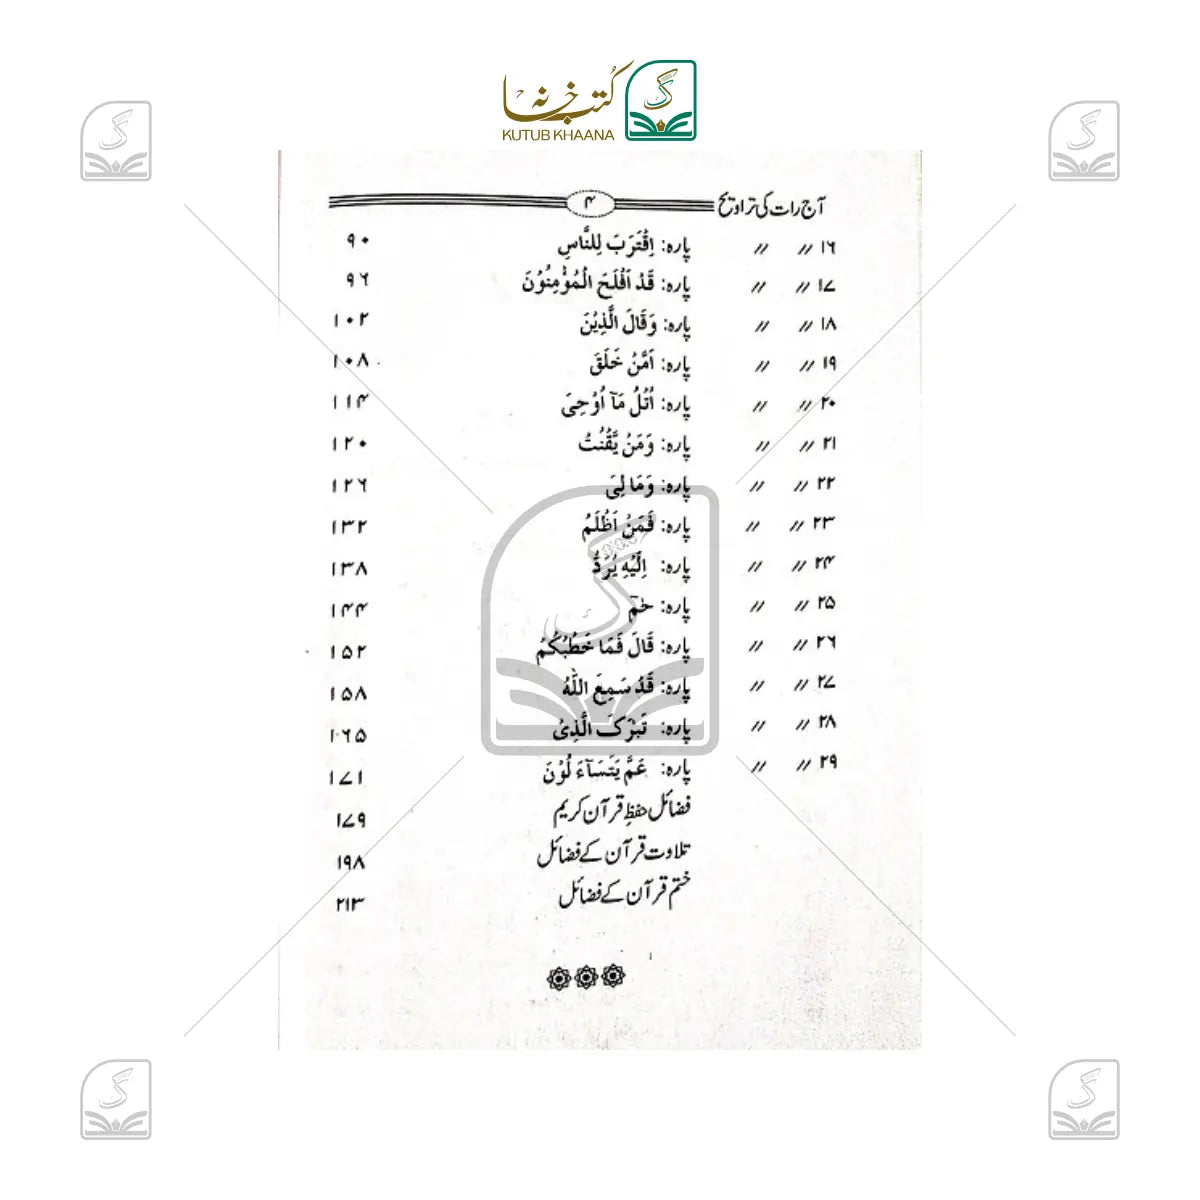 کُتب خانہ
KUTUB KHAANA
آج رات کی تراویح ۴
۱۶ // // پارہ: اِقْتَرَبَ لِلنَّاسِ ۹۰
۱۷ // // پارہ: قَدْ اَفْلَحَ الْمُؤْمِنُوْنَ ۹۶
۱۸ // // پارہ: وَقَالَ الَّذِيْنَ ۱۰۲
۱۹ // // پارہ: اَمَّنْ خَلَقَ ۱۰۸
۲۰ // // پارہ: اُتْلُ مَآ اُوْحِیَ ۱۱۴
۲۱ // // پارہ: وَمَنْ يَّقْنُتْ ۱۲۰
۲۲ // // پارہ: وَمَا لِیَ ۱۲۶
۲۳ // // پارہ: فَمَنْ اَظْلَمُ ۱۳۲
۲۴ // // پارہ: اِلَيْهِ يُرَدُّ ۱۳۸
۲۵ // // پارہ: حٰمٓ ۱۴۴
۲۶ // // پارہ: قَالَ فَمَا خَطْبُكُمْ ۱۵۲
۲۷ // // پارہ: قَدْ سَمِعَ اللّٰهُ ۱۵۸
۲۸ // // پارہ: تَبٰرَكَ الَّذِیْ ۱۶۵
۲۹ // // پارہ: عَمَّ يَتَسَآءَ لُوْنَ ۱۷۱
فضائل حفظِ قرآن کریم ۱۷۹
تلاوت قرآن کے فضائل ۱۹۸
ختم قرآن کے فضائل ۲۱۳